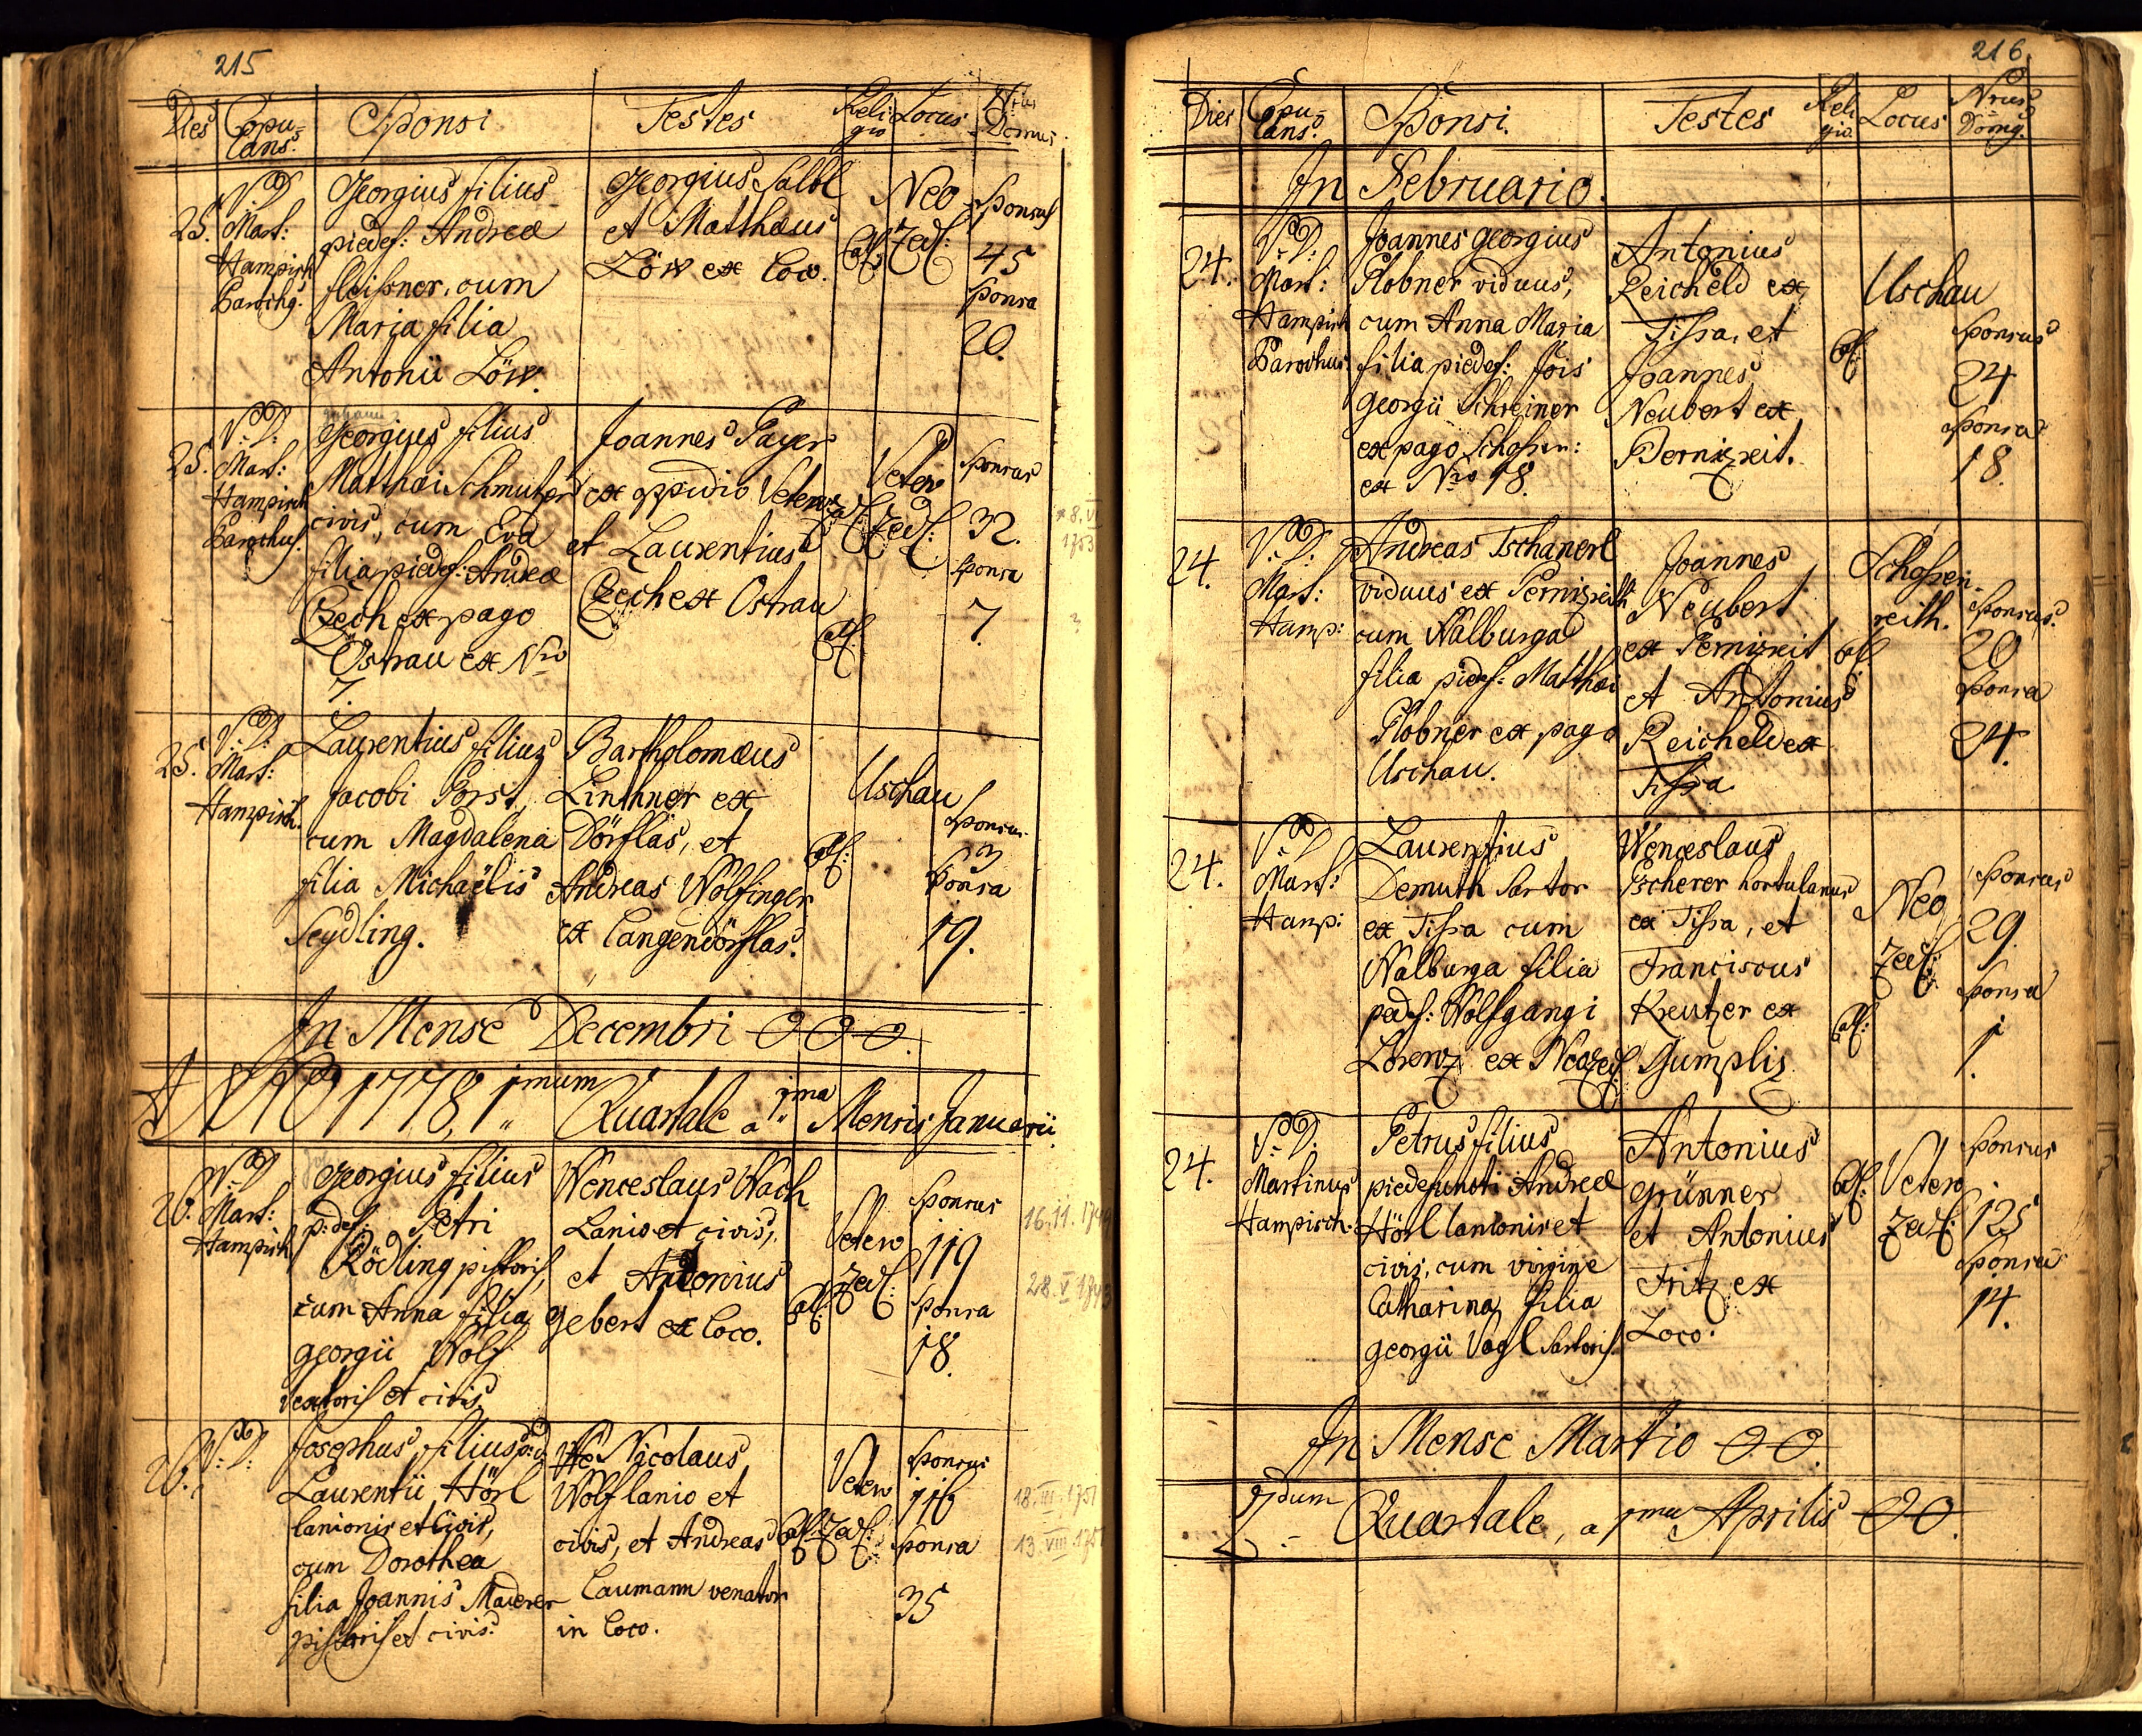 215
Dies Copu-lans. Sponsi Testes Religio Locus Nrus Domus
25. V. D. Mart: Hampisch Parochg.
Georgius filius
piedef: Andreæ
fleißner, cum
Maria filia
Antonii Löw.
Georgius
et Matthæus
Löw ex loco.
Cat:
Neo
Zedl:
Sponsus
45
Sponsa
20.
25. V. D. Mart: Hampisch Parochus.
Georgius filius
Matthæi Schmutzer
civis, cum Eva
filia piedef: Andreæ
Czech ex pago
Ostrau ex Nro
7.
Joannes Payer
ex oppidio Vetero
et Laurentius
Czech ex Ostrau
Cat:
Vetero
Zedl:
Sponsus
32.
Sponsa
7
* 8. VI
1753
?
25. V. D. Mart: Hampisch.
Laurentius filius
Jacobi Porst,
cum Magdalena
filia Michaëlis
Seydling.
Bartholomæus
Linthner ex
Dörflas, et
Andreas Wolfinger
ex Langendörflas.
Cat:
Uschau
Sponsus
3
Sponsa
19.
In Mense Decembri 0 0 0.
ANNO 1778, 1mum Quartale a 1ma Mensis Januarii
26. V. D. Mart: Hampisch
Georgius filius
p: def: Petri
Rödling pistoris,
cum Anna filia
Georgii Wolf
textoris et civis
Wenceslaus Wach
Lanio et civis,
et Antonius
Gebert ex loco.
Cat:
Vetero
Zedl:
Sponsus
119
Sponsa
18.
16. 11. 174
28. V 174
26. V. D.
Josephus filius p: d:
Laurentii Hörl
lanionis et Civis,
cum Dorothea
filia Joannis Maderer
pistoris et civis.
Nicolaus
Wolf lanio et
civis, et Andreas
Caumann venator
in loco.
Cat:
Vetero
Zedl:
Sponsus
116
Sponsa
35
18. III. 1751
13. VIII 175
216.
Dies Copu-lans. Sponsi. Testes Religio. Locus Nrus Domg.
In Februario.
24. V. D. Mart: Hampisch Parochus.
Joannes Georgius
Plobner viduus,
cum Anna Maria
filia piedef: Jois
Georgii Schreiner
ex pago Schossen:
ex Nro 18.
Antonius
Reicheld ex
Tissa, et
Joannes
Neubert ex
Bernizreit.
Cat:
Uschau
Sponsus
24
Sponsa
18.
24. V. D. Mart: Hamp:
Andreas Tschanerl
viduus ex Pernizreith
cum Walburga
filia piedef: Matthæi
Plobner ex pago
Uschau.
Joannes
Neubert
ex Pernizreit
et Antonius
Reicheld ex
Tissa
Cat
Schossen-
reith.
Sponsus.
20
Sponsa
24.
24. V. D. Mart: Hamp:
Laurentius
Demuth Sartor
ex Tissa cum
Walburga filia
pedef: Wolfgangi
Lorenz ex Neozedl:
Wenceslaus
Tscherer hortulanus
ex Tissa, et
Franciscus
Kreutzer ex
Gumpliz
Cat:
Neo
Zedl:
Sponsus
29.
Sponsa
1.
24. V. D. Martinus Hampisch.
Petrus filius
piedefuncti Andreæ
Hörl lanionis et
civis, cum virgine
Catharina filia
Georgii Vogl Sartoris.
Antonius
Grünner
et Antonius
Fritz ex
Loco.
Cat:
Vetero
Zedl:
Sponsus
125
Sponsa
14.
In Mense Martio 0 0.
2dum Quartale, a 1ma Aprilis 0 0.